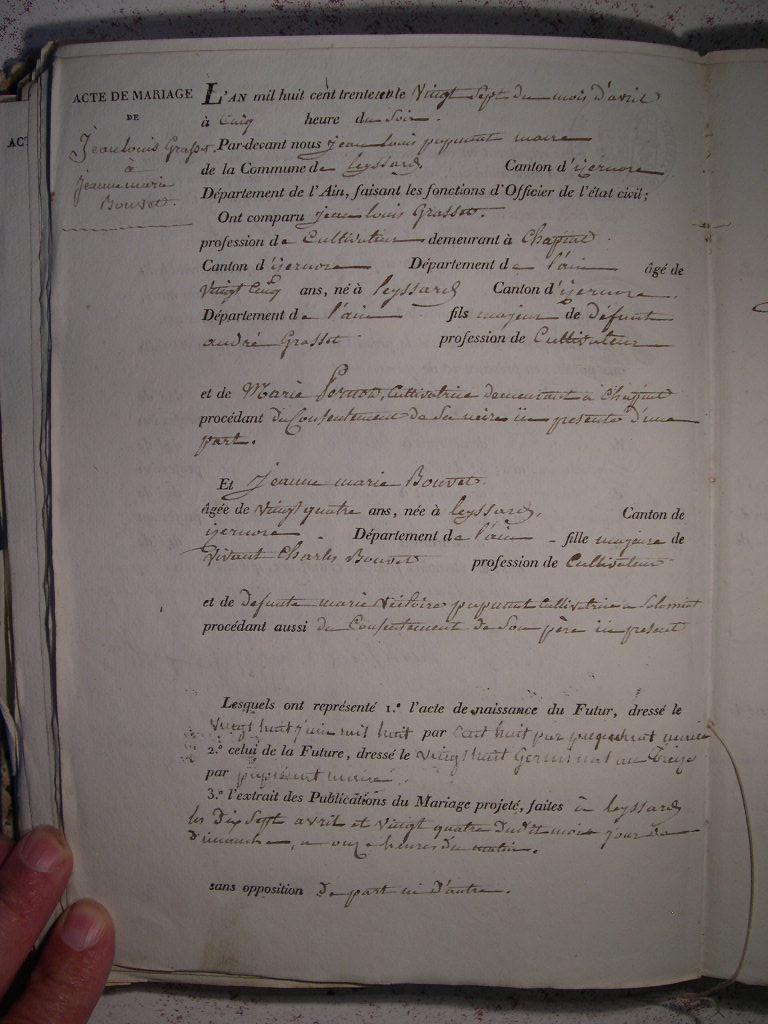 ACTE DE MARIAGE
DE
Jean Louis Grasset
à
jeanne marie
Bouvet.
L'AN mil huit cent trente le vingt Sept du mois d'avril
à Cinq heure du Soir.
Par-devant nous jean Louis maire
de la Commune de leyssard Canton d'izernore
Département de l'Ain, faisant les fonctions d'Officier de l'état civil;
Ont comparu jean Louis Grasset.
profession de Cultivateur demeurant à
Canton d'izernore Département de l'ain âgé de
vingt Cinq ans, né à leyssard Canton d'izernore.
Département de l'ain fils majeur de Defunt
andré Grasset profession de Cultivateur
et de Marie Cultivatrice demeurant à
procédant du Consentement de Sa mère ici presente D'une
part.
Et Jeanne marie Bouvet
âgée de vingt quatre ans, née à leyssard, Canton de
izernore. Département de l'ain - fille majeure de
vivant Charles Bouvet profession de Cultivateur
et de defunte marie victoire Cultivatrice a Solomiat
procédant aussi du Consentement de Son père ici present
Lesquels ont représenté 1.º l'acte de naissance du Futur, dressé le
vingt huit juin mil huit par cent huit par maire
2.º celui de la Future, dressé le vingt huit Germinal an treize
par maire.
3.º l'extrait des Publications du Mariage projeté, faites à leyssard
les Dix Sept avril et vingt quatre Dudit mois jour de
Dimanche, a onze heures du matin.
sans opposition De part ni D'autre.